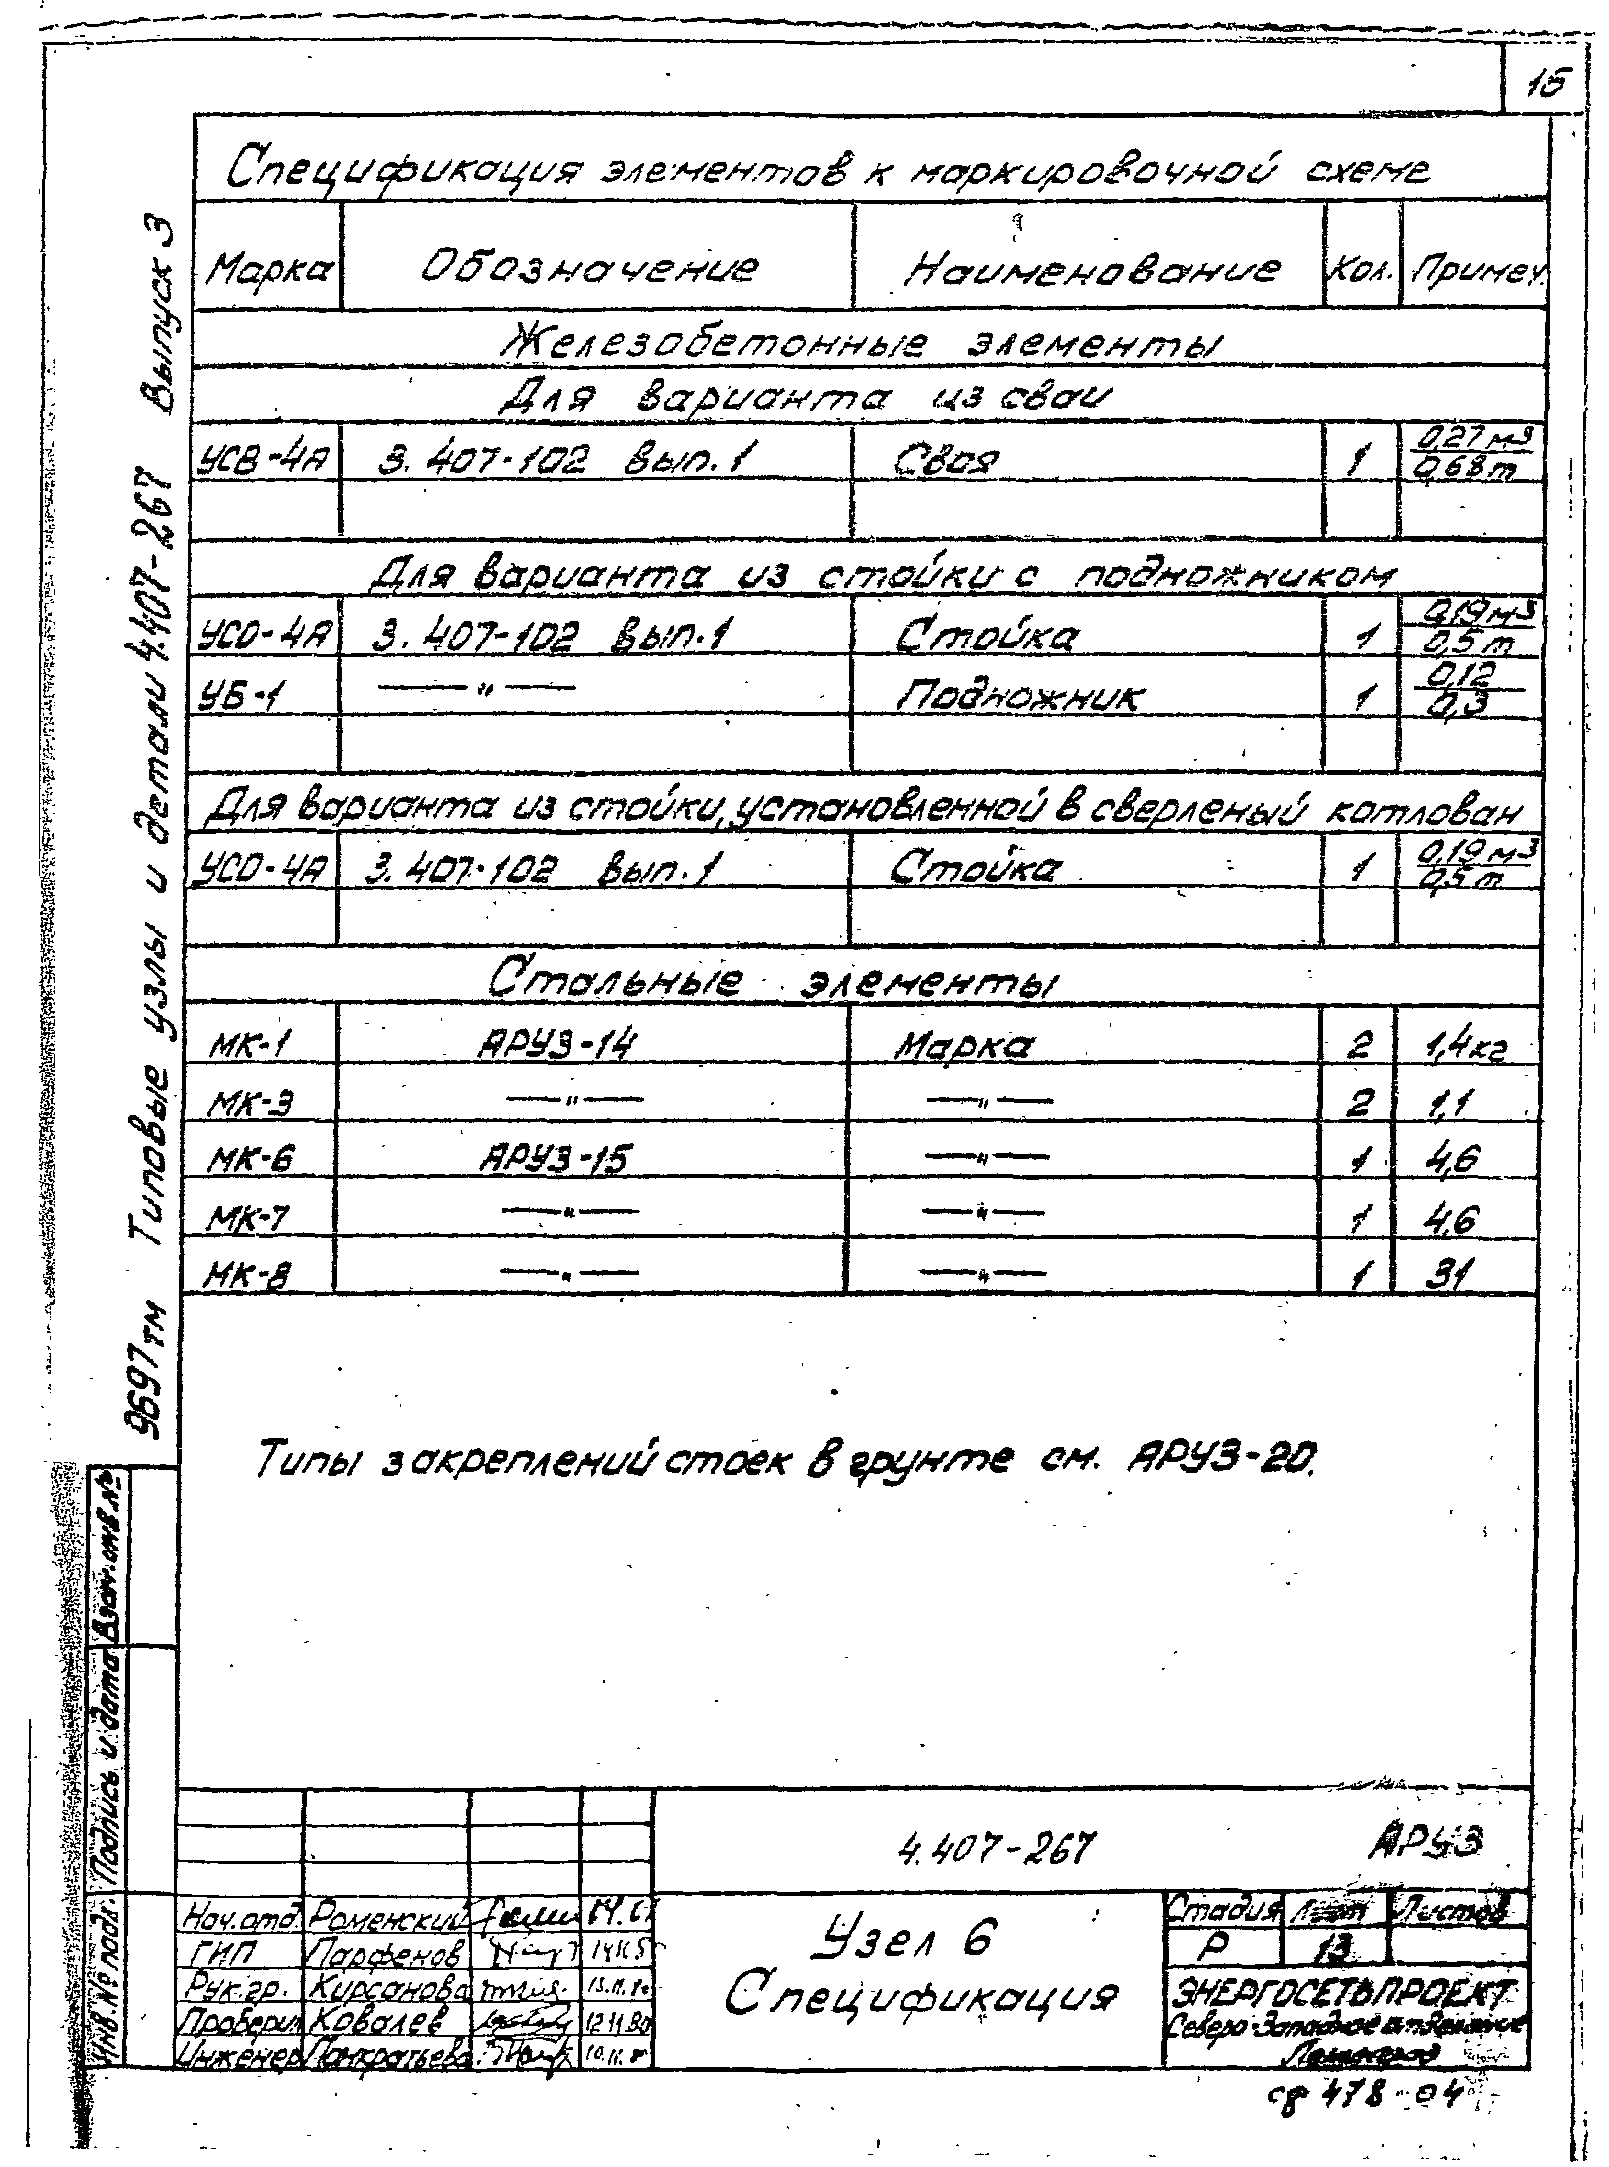 15
Спецификация элементов к маркировочной схеме
Марка Обозначение Наименование Кол. Примеч.
Железобетонные элементы
Для варианта из сваи
УСВ-4А 3.407-102 вып.1 Свая 1 0,27 м3 0,68 т
Для варианта из стойки с подножником
УСО-4А 3.407-102 вып.1 Стойка 1 0,19 м3 0,5 т
УБ-1 —〃— Подножник 1 0,12 0,3
Для варианта из стойки, установленной в сверленый котлован
УСО-4А 3.407-102 вып.1 Стойка 1 0,19 м3 0,5 т
Стальные элементы
МК-1 АРУ3-14 Марка 2 1,4кг
МК-3 —〃— —〃— 2 1,1
МК-6 АРУ3-15 —〃— 1 4,6
МК-7 —〃— —〃— 1 4,6
МК-8 —〃— —〃— 1 31
Типы закреплений стоек в грунте см. АРУ3-20.
9697тм Типовые узлы и детали 4.407-267 Выпуск 3
Взам. инв. №
Подпись и дата
Инв. № подл.
4.407-267 АРУ3
Нач.отд. Роменский
ГИП Парфенов
Рук.гр. Кирсанова
Проверил Ковалев 12 11 80
Инженер Панкратьева
Узел 6
Спецификация
Стадия Лист Листов
Р 13
ЭНЕРГОСЕТЬПРОЕКТ
Северо-Западное отделение
Ленинград
сф 478-04